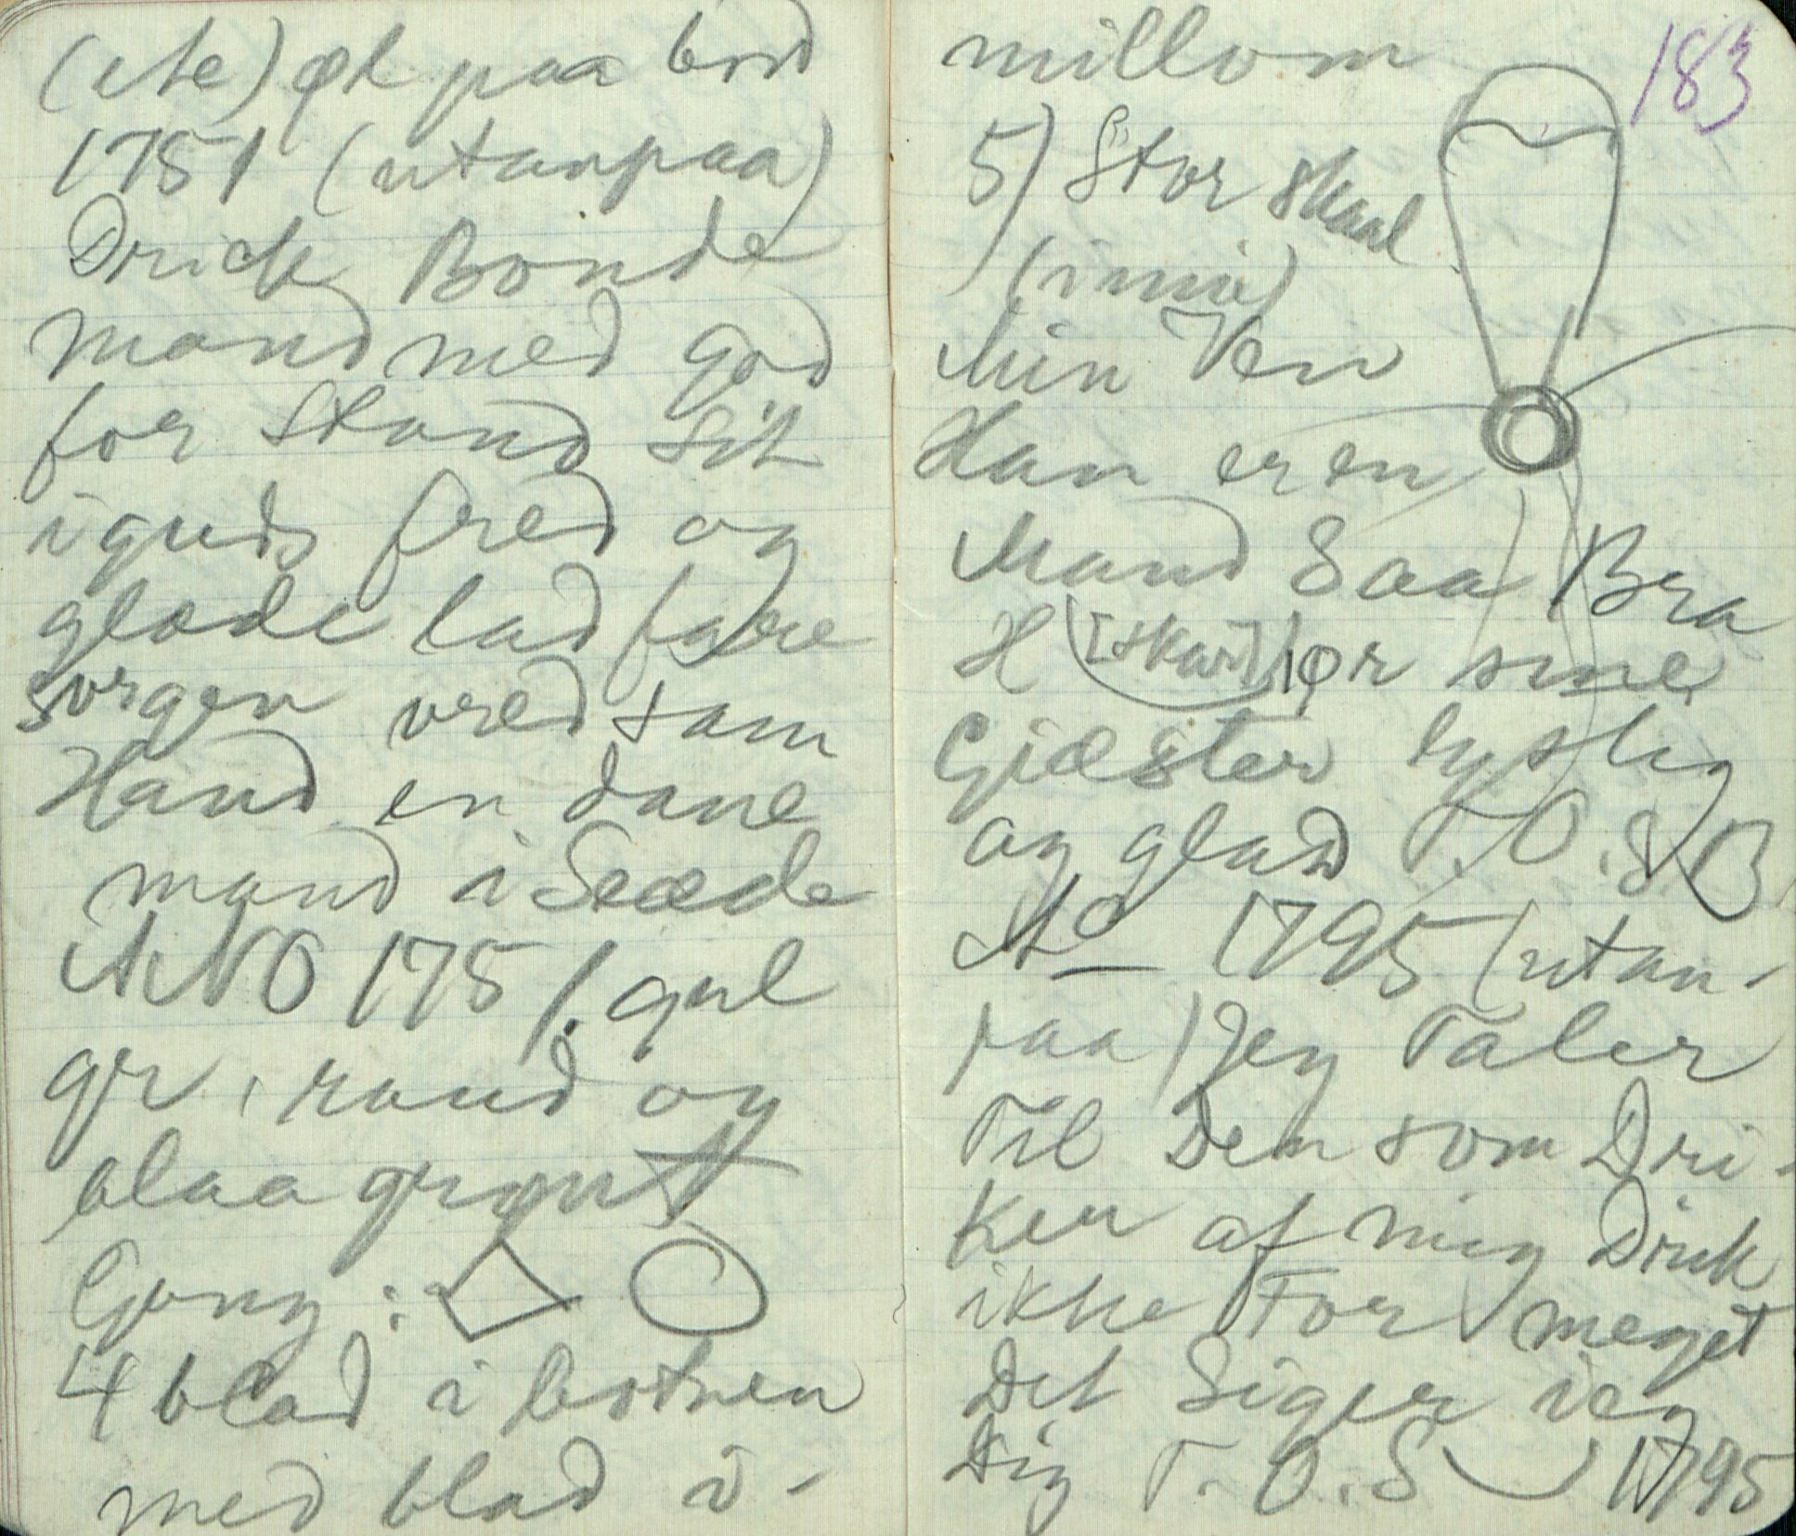 (ute) øl paa bord
1751 (utanpaa)
Drick Bonde
mand med god
for stand sit
i guds fred og
glæde lad fare
sorgen vred tam
Hand en dane
mand i Sæde
ANO 1751. gul
gr, raud og
blaa grønt
Gang :
4 blad i botnen
med blad i-
183
millom
5) Stor skaal
(inni)
Min Ven
Han er en
Mand Saa Bra
H [skar] Iør sine
Giæster lystig
og glad T.O.S.B.
Ao 1795 (utan-
paa) Jeg Taler
Til Den som Dri-
ker af mig Drik
ikke For meget
Det Siger ieg
Dig T.O.S 1795